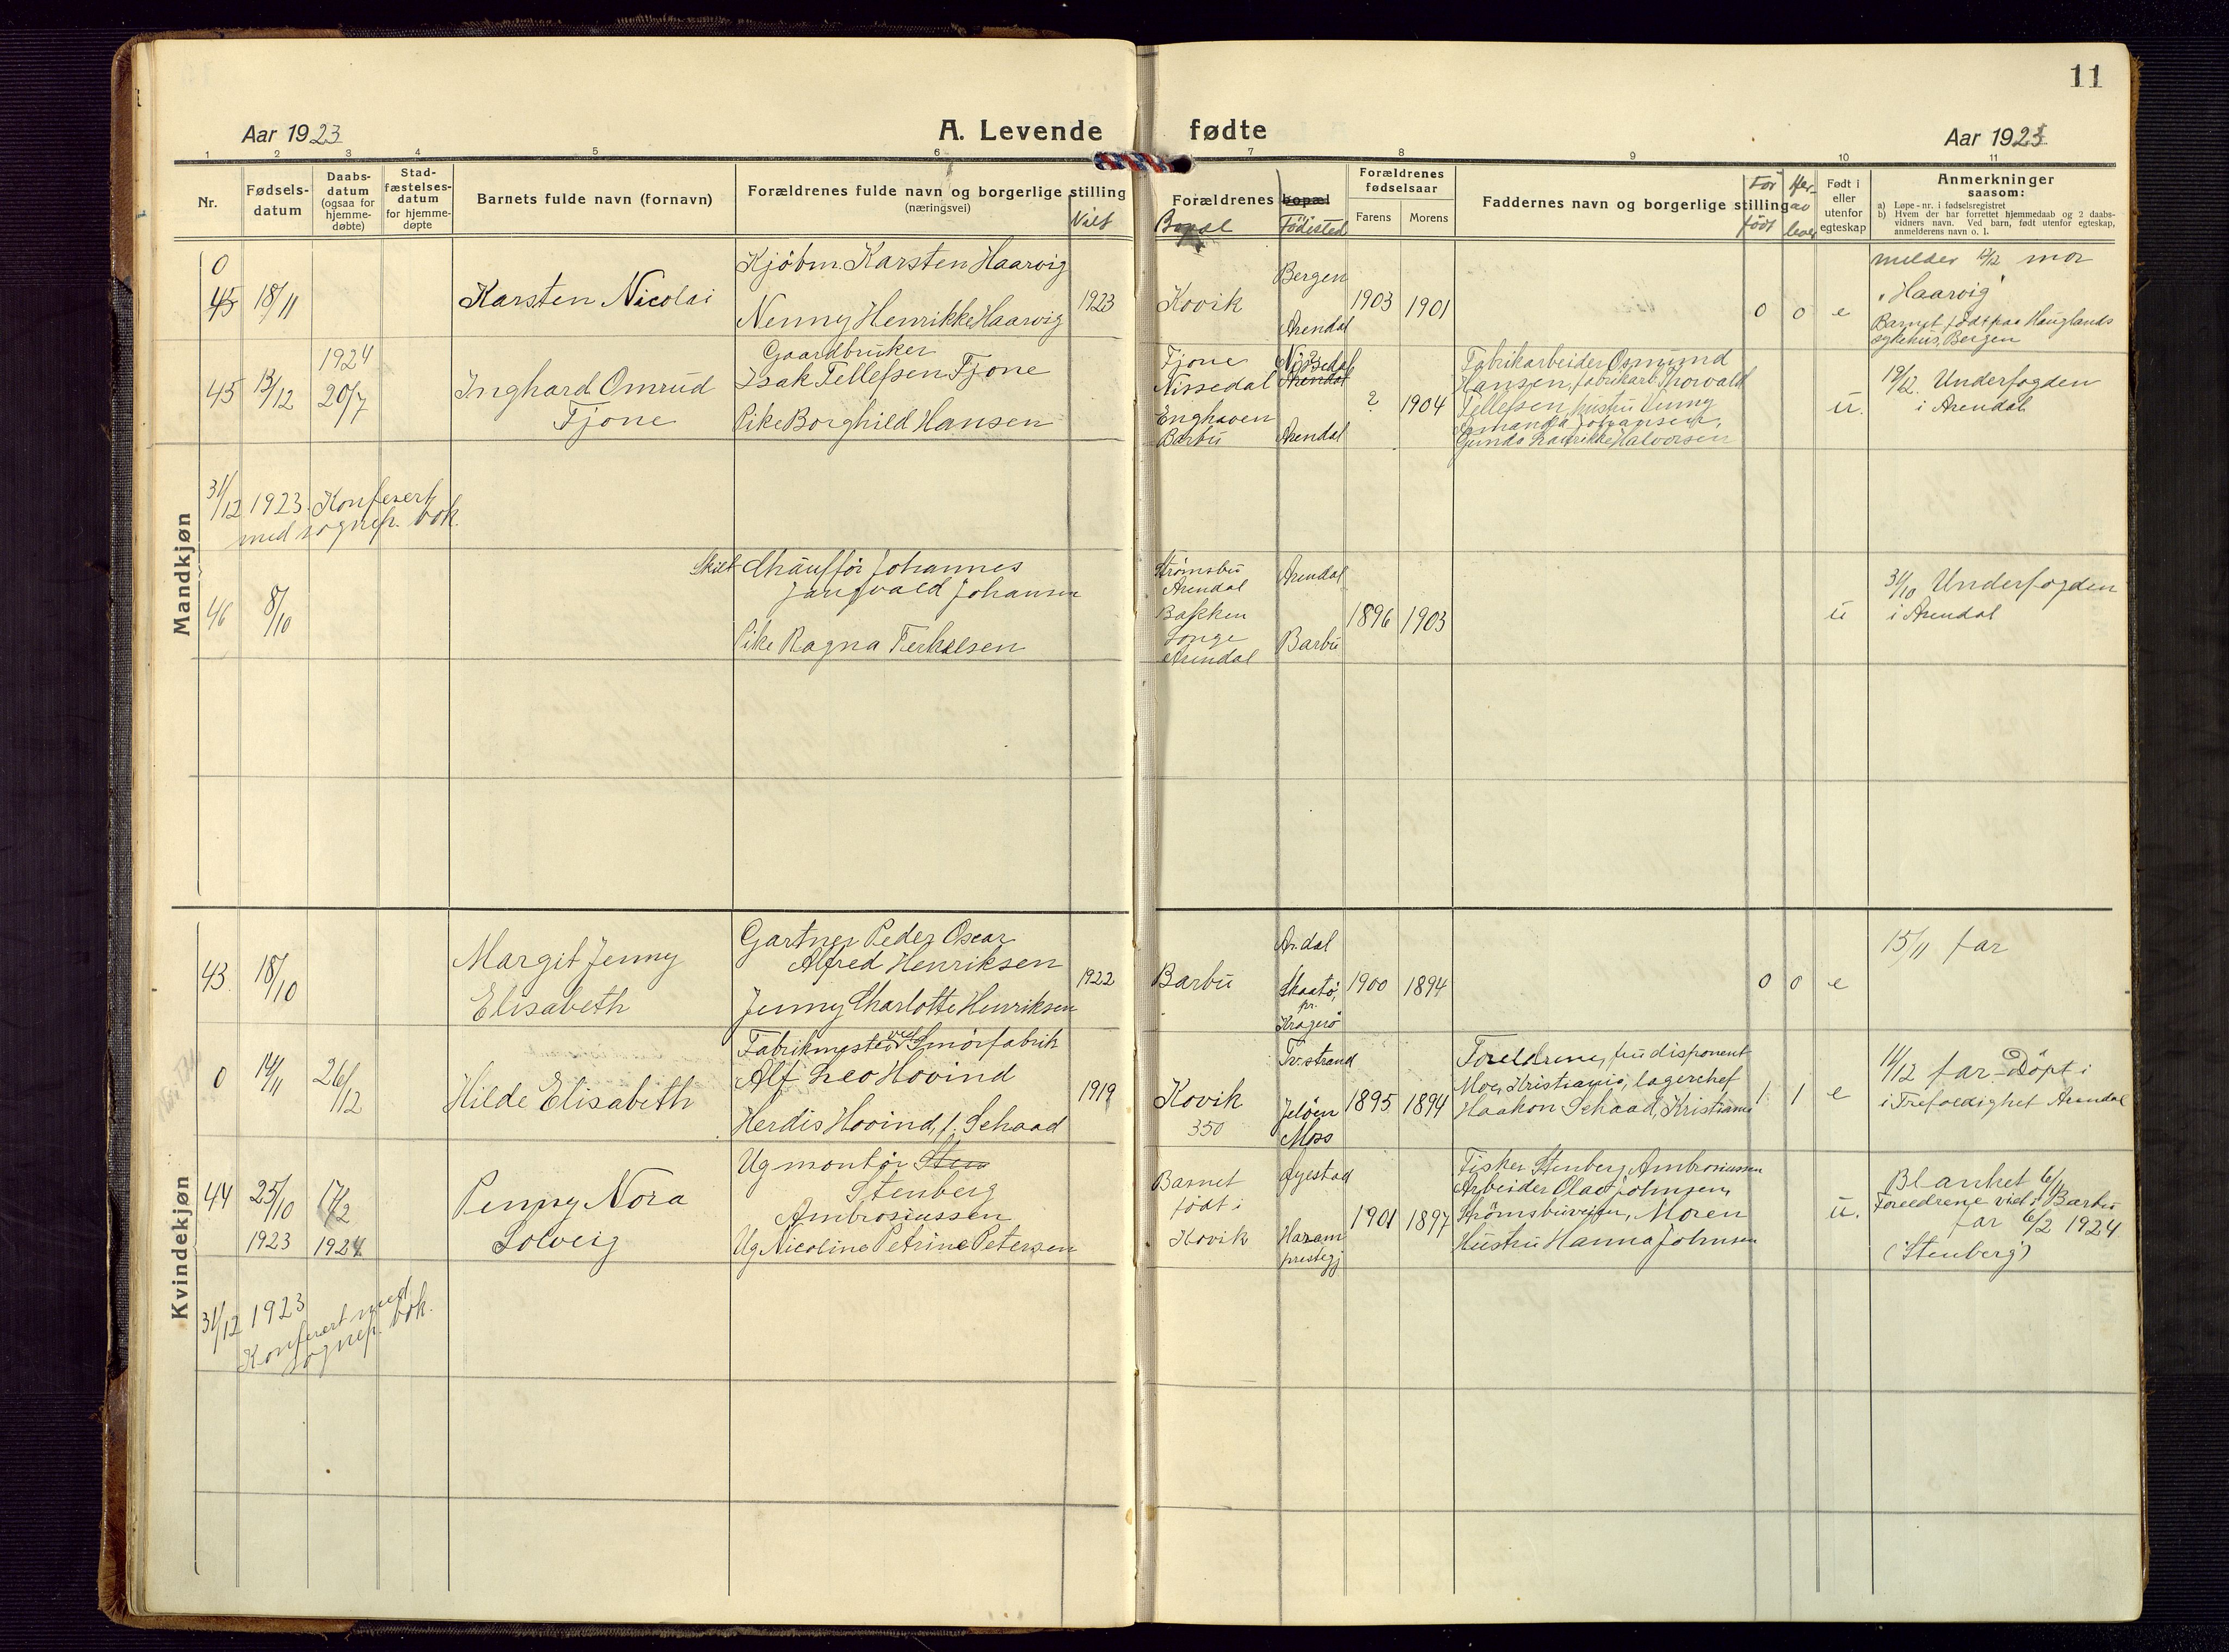 11
Aar 1923
A. Levende fødte
Aar 1923
1 2 3 4 5 6 7 8 9 10 11
Nr.
Fødsels-
datum
Daabs-
datum
(ogsaa for
hjemme-
døbte)
Stad-
fæstelses-
datum
for hjemme-
døpte
Barnets fulde navn (fornavn)
Forældrenes fulde navn og borgerlige stilling
(næringsvei)
Viet
Forældrenes bopæl
Bopæl Födested
Forældrenes
fødselsaar
Farens Morens
Faddernes navn og borgerlige stilling
För
født
Her-
av
lever
Født i
eller
utenfor
egteskap
Anmerkninger
saasom:
a) Løpe-nr. i fødselsregistret
b) Hvem der har forrettet hjemmedaab og 2 daabs-
vidners navn. Ved barn, født utenfor egteskap,
anmelderens navn o. l.
Mandkjøn
0
45 18/11
Karsten Nicolai
Kjöbm. Karsten Haarvig
Nenny Henrikke Haarvig
1923
Kovik
Bergen
Arendal
1903 1901
0 0 e
melder 12/12 mor
"Haarvig"
Barnet født paa Hauglands
sykehus, Bergen
45 13/12
1924
20/7
Inghard Omrud
Fjone
Gaardbruker
Isak Tellefsen Fjone
Pike Borghild Hansen
Fjone
Nissedal
Enghaven
Barbu
Nissedal
Arendal
Arendal
? 1904
Fabrikarbeider Osmund
Hansen, fabrikarb. Thorvald
Tellefsen, hustru Venny
Amanda Johansen,
Gunda Henrikke Halvorsen
u.
19/12. Underfogden
i Arendal
31/12 1923. Konferert
med sognep. bok.
46 8/10
Skilt Chauffør Johannes
Jangvald Johansen
Pike Ragna Terkelsen
Strømsbu
Arendal
Bakken
Songe
Arendal
Arendal
Barbu
1896 1903
u
31/10 Underfogden
i Arendal
Kvindekjøn
43. 18/10
Margit Jenny
Elisabeth
Gartner Peder Oscar
Alfred Henriksen
Jenny Charlotte Henriksen
1922
Barbu
Ar.dal
Skaatö,
pr.
Kragerö
1900 1894
0 0 e
15/11 far
0 14/11 26/12
Hilde Elisabeth
Fabrikmester ved Smörfabrik
Alf Leo Hovind
Herdis Hovind, f. Schaad
1919
Kovik
350
Tv.strand
Jelöen
Moss
1895 1894
Foreldrene, fru disponent
Moe, Kristiania, lagerchef
Haakon Schaad, Kristiania
1 1 e
14/12 far - Döpt i
i Trefoldighet Arendal
44 25/10
1923
17/2
1924
Penny Nora
Solveig
Ugmontör Sten
Stenberg
Ambrosiussen
Ug Nicoline Petrine Petersen
Barnet
født i
Kovik
Øyestad
Haram
prestegj
1901 1897
Fisker Stenberg Ambrosiussen
Arbeider Olav Johnsen,
Strömsbuveien, Moren
Hustru Hanna Johnsen
u.
Blanket 6/11
Foreldrene viet i Barbu
far 6/2 1924
(Stenberg)
31/12 1923
Konferert med
sognep. bok.